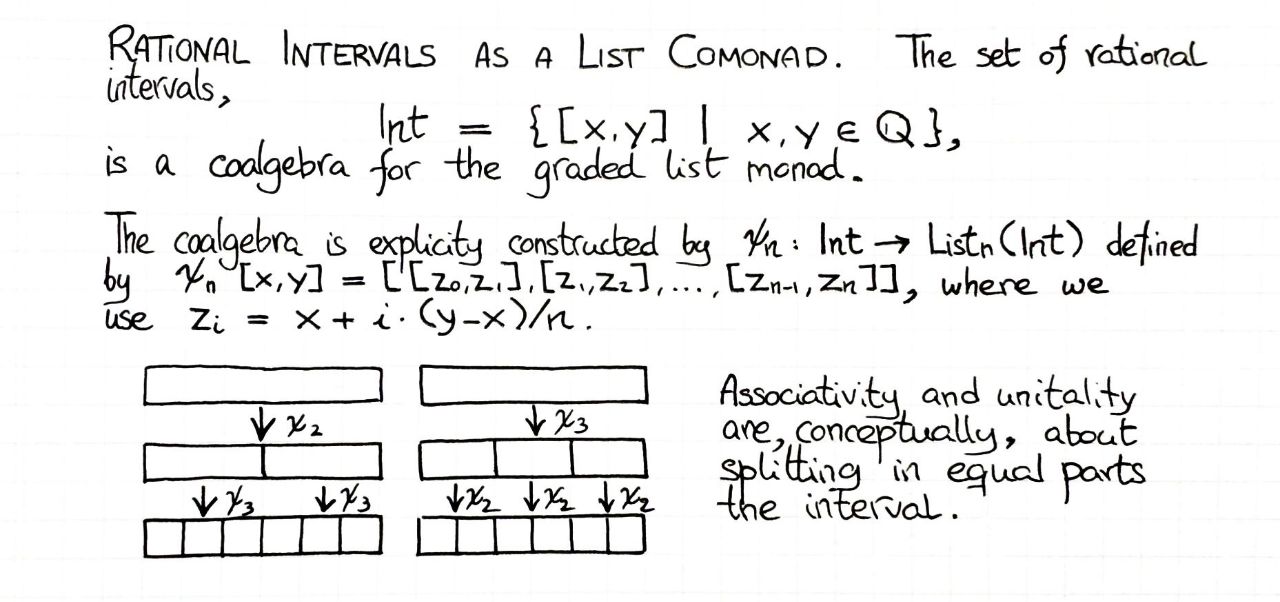 RATIONAL INTERVALS AS A LIST COMONAD. The set of rational
intervals,
Int = {[x,y] | x,y ∈ ℚ},
is a coalgebra for the graded list monad.
The coalgebra is explicity constructed by ψn : Int → Listn(Int) defined
by ψn [x,y] = [[z0,z1],[z1,z2],...,[zn-1,zn]], where we
use zi = x + i·(y-x)/n.
↓ψ2
↓ψ3 ↓ψ3
↓ψ3
↓ψ2 ↓ψ2 ↓ψ2
Associativity and unitality
are, conceptually, about
splitting in equal parts
the interval.